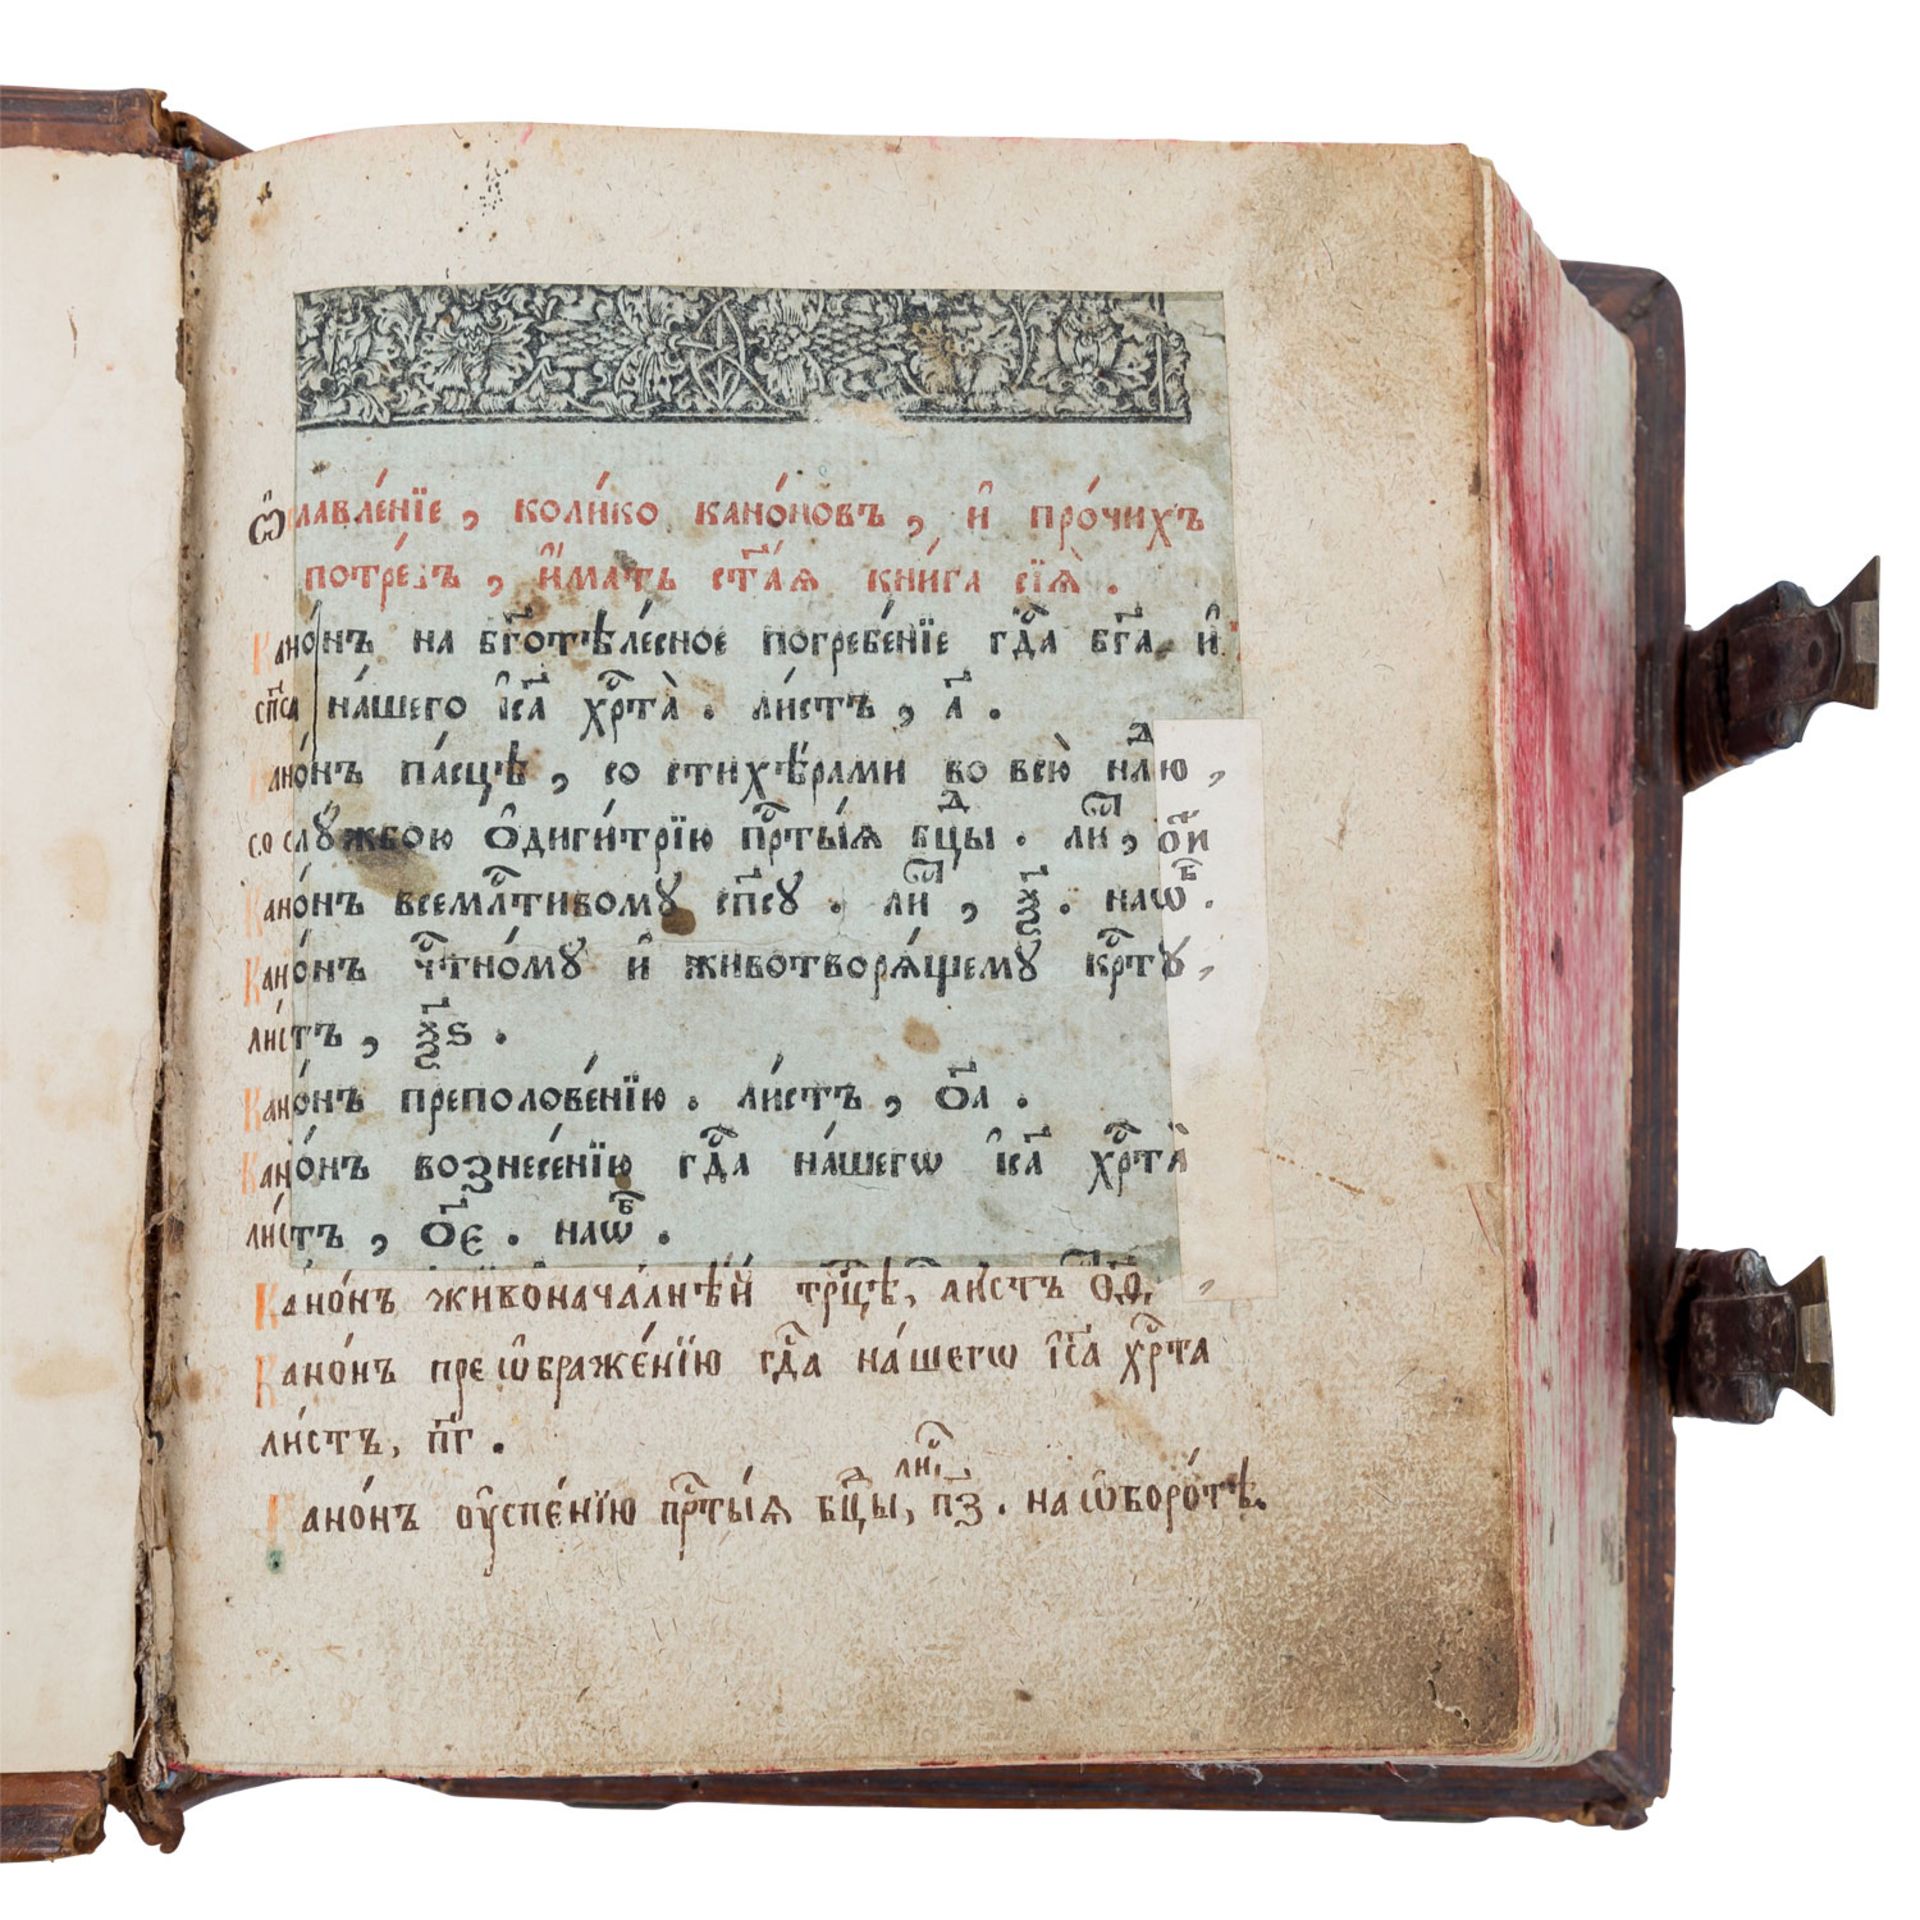 Ѡ҆главле́нїе, коли́ко кано́новъ, и҆ про́чихъ
потре́бъ, и҆́мать ст҃а́ѧ кни́га сїѧ̀.
Кано́нъ на бг҃отѣле́сное погребе́нїе гдⷭ҇а бг҃а и҆
сп҃са на́шего і҆с҃а хрⷭ҇та̀. ли́стъ, а҃.
Кано́нъ па́сцѣ, со стихѣ́рами во всю̀ нлⷣю,
со слꙋ́жбою ѻ҆диги́трїю прⷭ҇ты́ѧ бцⷣы. лиⷭ҇, ѻ҃и
Кано́нъ всемлⷭ҇тивомꙋ сп҃сꙋ. лиⷭ҇, ѯ҃. наѡⷡ҇.
Кано́нъ чⷭ҇тно́мꙋ и҆ животворѧ́щемꙋ крⷭ҇тꙋ,
ли́стъ, ѯ҃ѕ.
Кано́нъ преполове́нїю. ли́стъ, ѻ҃а.
Кано́нъ вознесе́нїю гдⷭ҇а на́шегѡ і҆с҃а хрⷭ҇та̀
ли́стъ, ѻ҃є. наѡⷡ҇.
Кано́нъ живонача́лнѣй трⷪ҇цѣ, ли́стъ ѻ҃ѳ,
Кано́нъ преѡ҆браже́нїю гдⷭ҇а на́шегѡ і҆с҃а хрⷭ҇та
ли́стъ, п҃г.
Кано́нъ оу҆спе́нїю прⷭ҇ты́ѧ бцⷣы, лиⷭ҇ п҃з. на ѡ҆боро́тѣ.